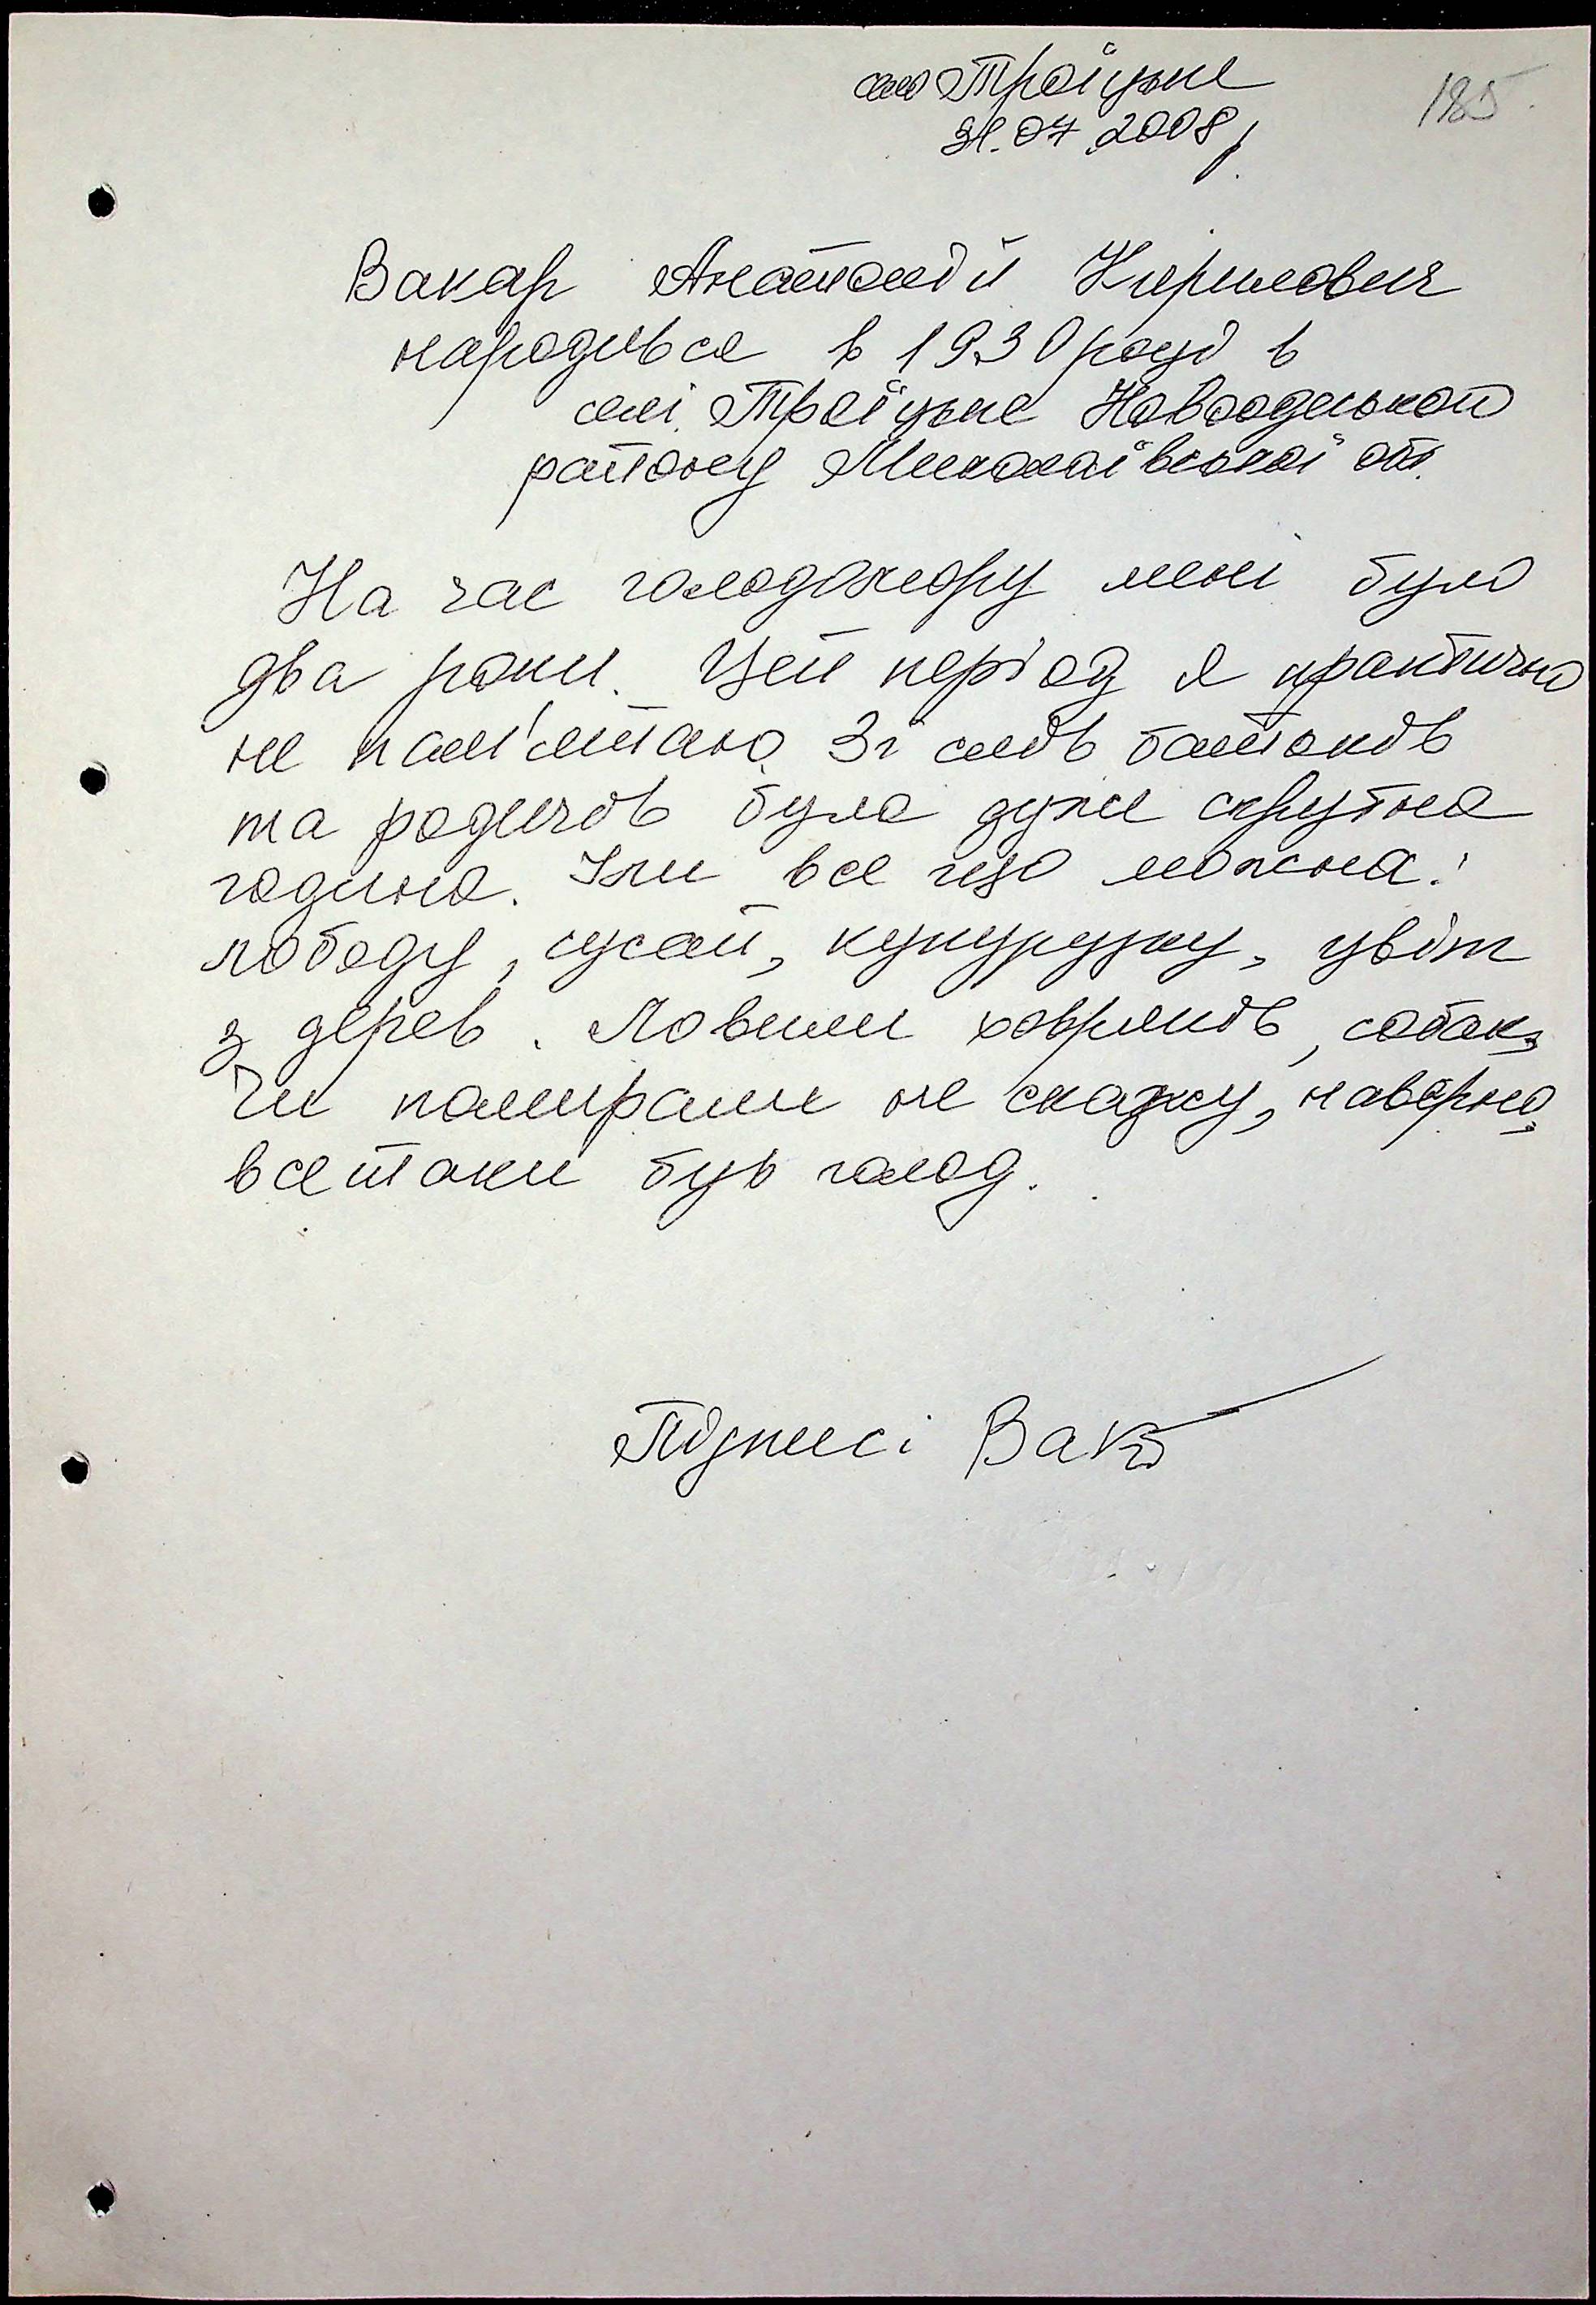 село Троїцьке
185
31.07.2008р.
Вакар Анатолій Кирилович
народився в 1930 році в
селі Троїцьке Новоодеського
району Миколаївської обл.
На час голодомору мені було
два роки. Цей період я практично
не пам'ятаю. Зі слів батьків
та родичів була дуже скрутна
година. Їли все що можна:
лободу, сусай, кукурузку, цвіт
з дерев. Ловили ховрахів, собак,
Чи помирали не скажу, наверно,
все таки був голод.
Підписі Вак